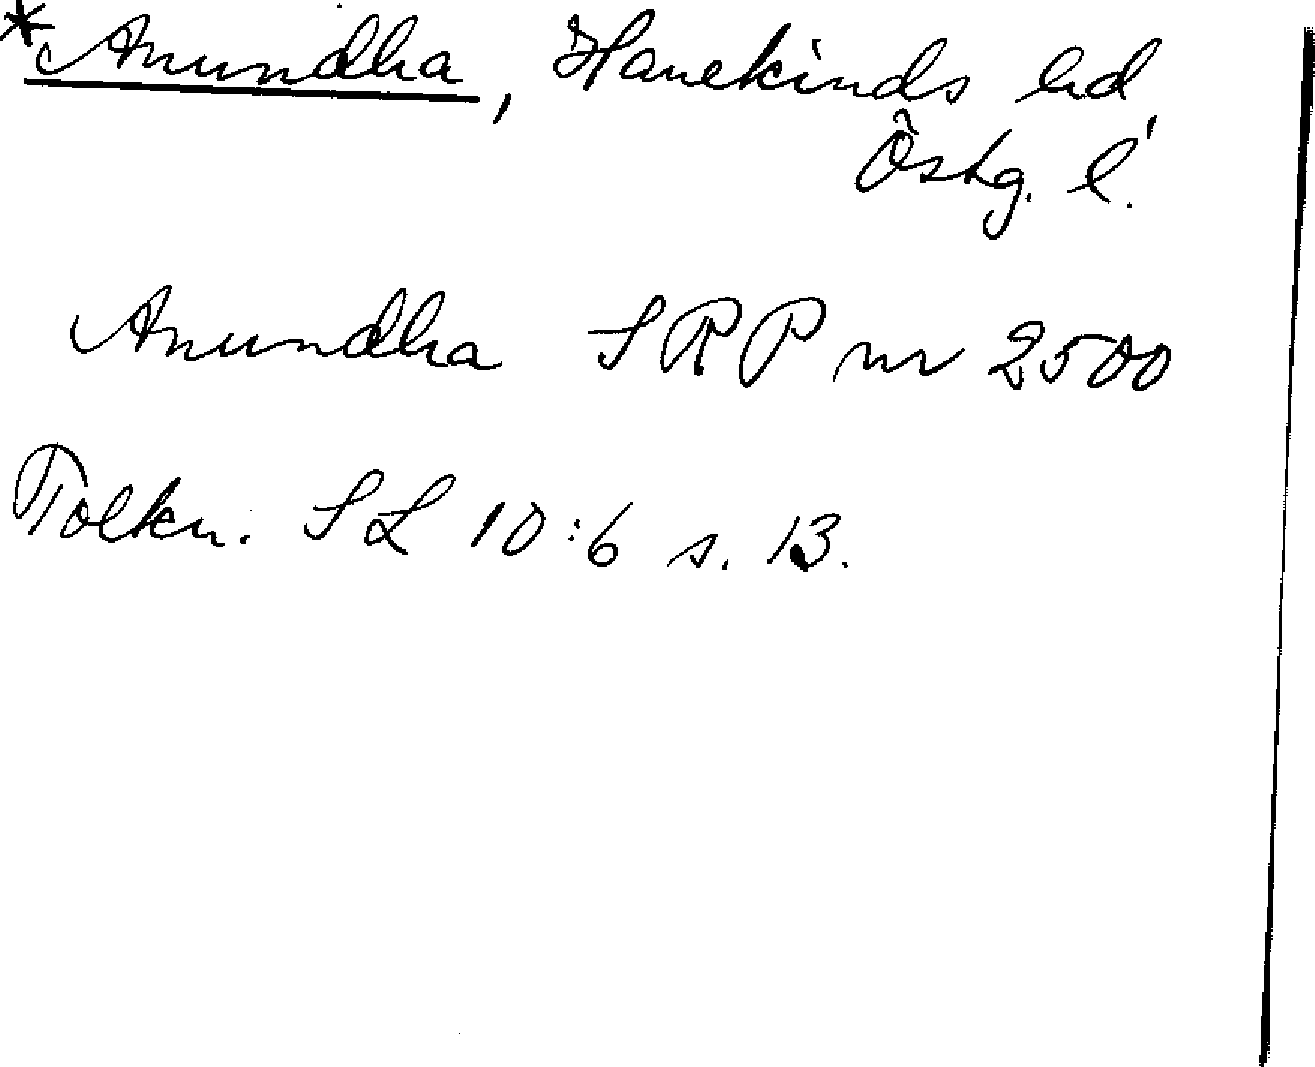 *Anundha, Hanekinds hd
Östg. l.
Anundha SRP nr 2500
Tolkn. SL 10:6 s. 13.